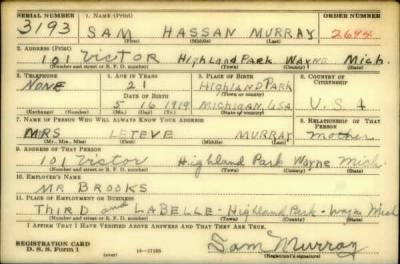 SERIAL NUMBER 1. NAME (Print) ORDER NUMBER
3193 SAM HASSAN MURRAY 2694
(First) (Middle) (Last)
2. ADDRESS (Print)
101 Victor Highland Park Wayne Mich.
(Number and street or R. F. D. number) (Town) (County) (State)
3. TELEPHONE 4. AGE IN YEARS 5. PLACE OF BIRTH 6. COUNTRY OF CITIZENSHIP
NONE 21 Highland Park
DATE OF BIRTH
5 16 1919 MICHIGAN, USA U.S.A
(Exchange) (Number) (Mo.) (Day) (Yr.) (State or country)
7. NAME OF PERSON WHO WILL ALWAYS KNOW YOUR ADDRESS 8. RELATIONSHIP OF THAT PERSON
MRS LETEVE MURRAY Mother
(Mr., Mrs., Miss) (First) (Middle) (Last)
9. ADDRESS OF THAT PERSON
101 Victor Highland Park Wayne Mich
(Number and street or R. F. D. number) (Town) (County) (State)
10. EMPLOYER'S NAME
MR BROOKS
11. PLACE OF EMPLOYMENT OR BUSINESS
THIRD and LABELLE - Highland Park - Wayne Mich
(Number and street or R. F. D. number) (Town) (County) (State)
I AFFIRM THAT I HAVE VERIFIED ABOVE ANSWERS AND THAT THEY ARE TRUE.
REGISTRATION CARD
D. S. S. Form 1 Sam Murray
(Registrant's signature)